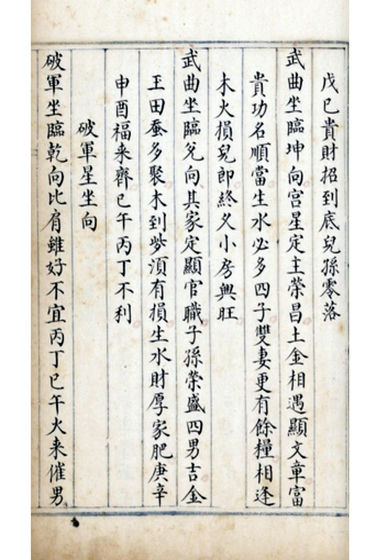 戊巳貴財招到底兒孫零落
武曲坐臨坤向宫星定主榮昌土金相遇顯文章富
貴功名順當生水必多四子雙妻更有餘糧相逢
木火損兒郎終久小房興旺
武曲坐臨兊向其家定顯官職子孫榮盛四男吉金
玉田蚕多聚木到必須有損生水財厚家肥庚辛
申酉福来齊巳午丙丁不利
破軍星坐向
破軍坐臨乾向比肩雖好不宜丙丁巳午火来催男